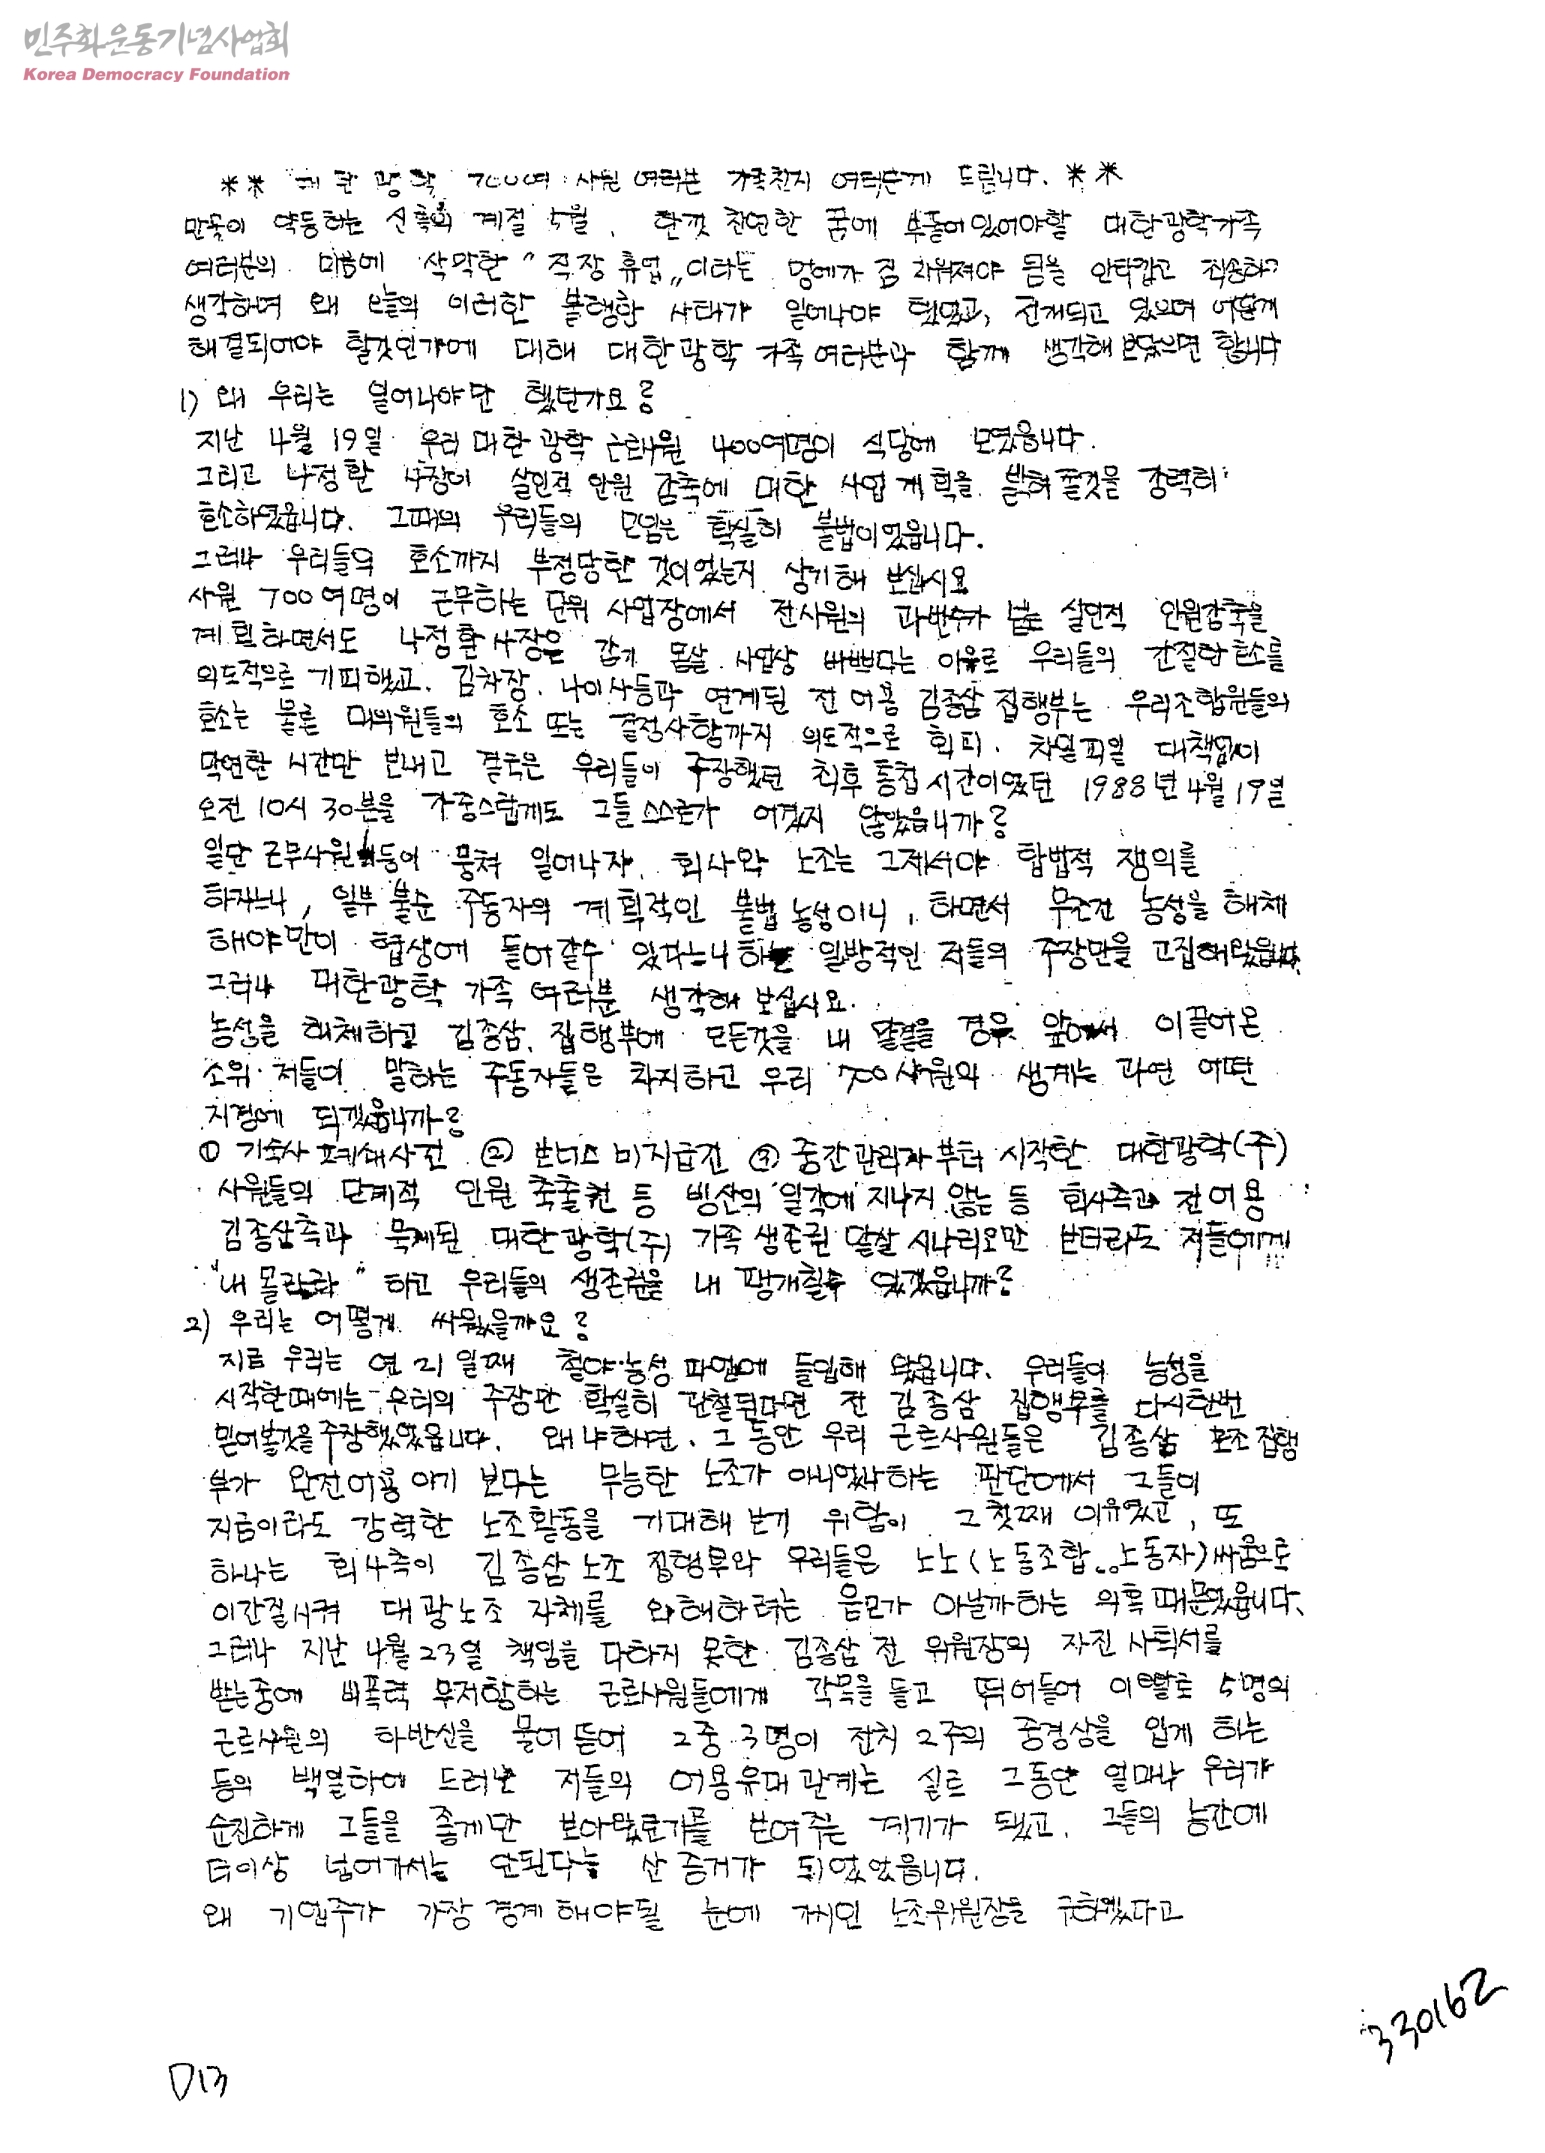 민주화운동기념사업회
Korea Democracy Foundation
** 대한광학 700여 사원 여러분 가족친지 여러분께 드립니다. **
만물이 약동하는 신록의 계절 5월, 한껏 찬연한 꿈에 부풀어있어야할 대한광학가족
여러분의 마음에 삭막한 "직장 휴업"이라는 멍에가 짐 지워져야 됨을 안타깝고 죄송하게
생각하며 왜 오늘의 이러한 불행한 사태가 일어나야 했었고, 전개되고 있으며 어떻게
해결되어야 할것인가에 대해 대한광학 가족 여러분과 함께 생각해 보았으면 합니다
1) 왜 우리는 일어나야만 했던가요?
지난 4월 19일 우리 대한광학 근로사원 400여명이 식당에 모였읍니다.
그리고 나정환 사장이 살인적 인원 감축에 대한 사업계획을 밝혀 줄것을 강력히
호소하였읍니다. 그때의 우리들의 모임은 확실히 불법이었읍니다.
그러나 우리들의 호소까지 부정당한 것이었는지 상기해 보십시요
사원 700여명이 근무하는 단위 사업장에서 전사원의 과반수가 넘는 살인적 인원감축을
계획하면서도 나정환사장은 감기 몸살 사업상 바쁘다는 이유로 우리들의 간절한 호소를
의도적으로 기피했고. 김차장. 나이사등과 연계된 전 어용 김종삼 집행부는 우리조합원들의
호소는 물론 대의원들의 호소 또는 결정사항까지 의도적으로 회피. 차일피일 대책없이
막연한 시간만 보내고 결국은 우리들이 주장했던 최후통첩시간이었던 1988년 4월 19일
오전 10시 30분을 가증스럽게도 그들 스스로가 어겼지 않았읍니까?
일단 근무사원들이 뭉쳐 일어나자. 회사와 노조는 그제서야 합법적 쟁의를
하자느니, 일부 불순 주동자의 계획적인 불법 농성이니, 하면서 무조건 농성을 해체
해야만이 협상에 들어갈수 있다느니 하는 일방적인 저들의 주장만을 고집해왔읍니다.
그러나 대한광학 가족 여러분 생각해 보십시요.
농성을 해체하고 김종삼. 집행부에 모든것을 내 맡겼을 경우 앞에서 이끌어온
소위 저들이 말하는 주동자들은 차지하고 우리 700사원의 생계는 과연 어떤
지경에 되겠읍니까?
① 기숙사 폐쇄사건 ② 보너스 미지급건 ③ 중간관리자부터 시작한 대한광학(주)
사원들의 단계적 인원 축출건 등 빙산의 일각에 지나지 않는 등 회사측과 전 어용
김종삼측과 묵계된 대한광학(주) 가족 생존권 말살 시나리오만 보더라도 저들에게
"내 몰라라" 하고 우리들의 생존권을 내 팽개칠수 있겠읍니까?
2) 우리는 어떻게 싸웠을까요?
지금 우리는 연 21일째 철야농성 파업에 돌입해 왔읍니다. 우리들이 농성을
시작한때에는 우리의 주장만 확실히 관철된다면 전 김종삼 집행부를 다시한번
믿어볼것을 주장했었읍니다. 왜냐하면. 그 동안 우리 근로사원들은 김종삼 노조집행
부가 완전어용이기 보다는 무능한 노조가 아니었나하는 판단에서 그들이
지금이라도 강력한 노조활동을 기대해 보기 위함이 그 첫째 이유였고, 또
하나는 회사측이 김종삼노조 집행부와 우리들은 노노(노동조합..노동자)싸움으로
이간질시켜 대광노조 자체를 와해하려는 음모가 아닐까하는 의혹 때문이었읍니다.
그러나 지난 4월 23일 책임을 다하지 못한 김종삼 전 위원장의 자진 사퇴서를
받는중에 비폭력 무저항하는 근로사원들에게 각목을 들고 뛰어들어 이빨로 5명의
근로사원의 하반신을 물어뜯어 그중 3명이 전치 2주의 중경상을 입게 하는
등의 백일하에 드러난 저들의 어용유대관계는 실로 그동안 얼마나 우리가
순진하게 그들을 좋게만 보아왔는가를 보여주는 계기가 됐고. 그들의 농간에
더이상 넘어가서는 안된다는 산 증거가 되었었읍니다.
왜 기업주가 가장 경계해야될 눈에 가시인 노조위원장을 구하겠다고
330162
D13